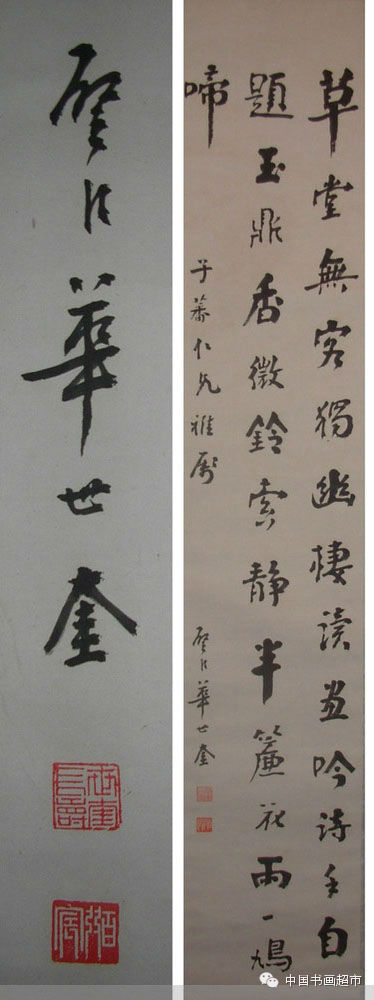 草堂無客獨幽棲讀畫吟詩手自
題玉鼎香微鈴索静半簾花雨一鳩
啼
子蕃仁兄雅屬
璧臣華世奎
璧臣華世奎
中国书画超市